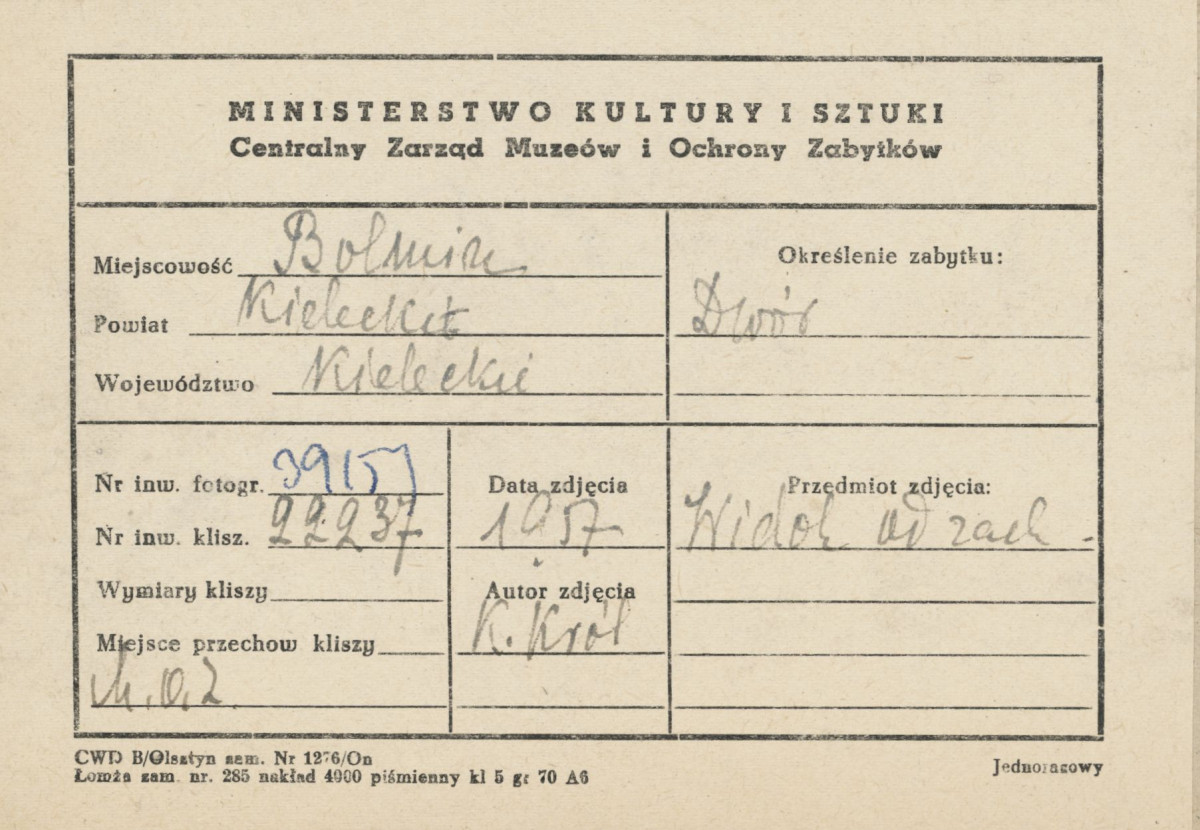 MINISTERSTWO KULTURY I SZTUKI
Centralny Zarząd Muzeów i Ochrony Zabytków
Miejscowość Bolmin
Powiat Kielecki
Województwo Kieleckie
Określenie zabytku:
Dwór
Nr inw. fotogr. 39157
Nr inw. klisz. 22237
Wymiary kliszy
Miejsce przechow kliszy
M.O.Z.
Data zdjęcia
1957
Autor zdjęcia
K. Król
Przedmiot zdjęcia:
Widok od zach.
CWD B/Olsztyn zam. Nr 1276/On
Łomża zam. nr. 285 nakład 4900 piśmienny kl 5 gr 70 A6
Jednorazowy